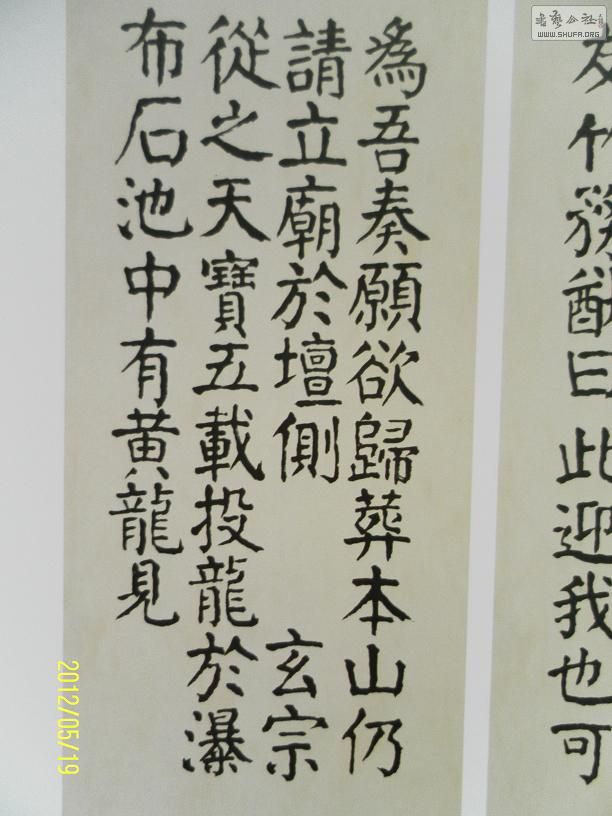 友竹務猷曰此迎我也可
為吾奏願欲歸葬本山仍
請立廟於壇側 玄宗
從之天寶五載投龍於瀑
布石池中有黃龍見
2012/05/19
WWW.SHUFA.ORG